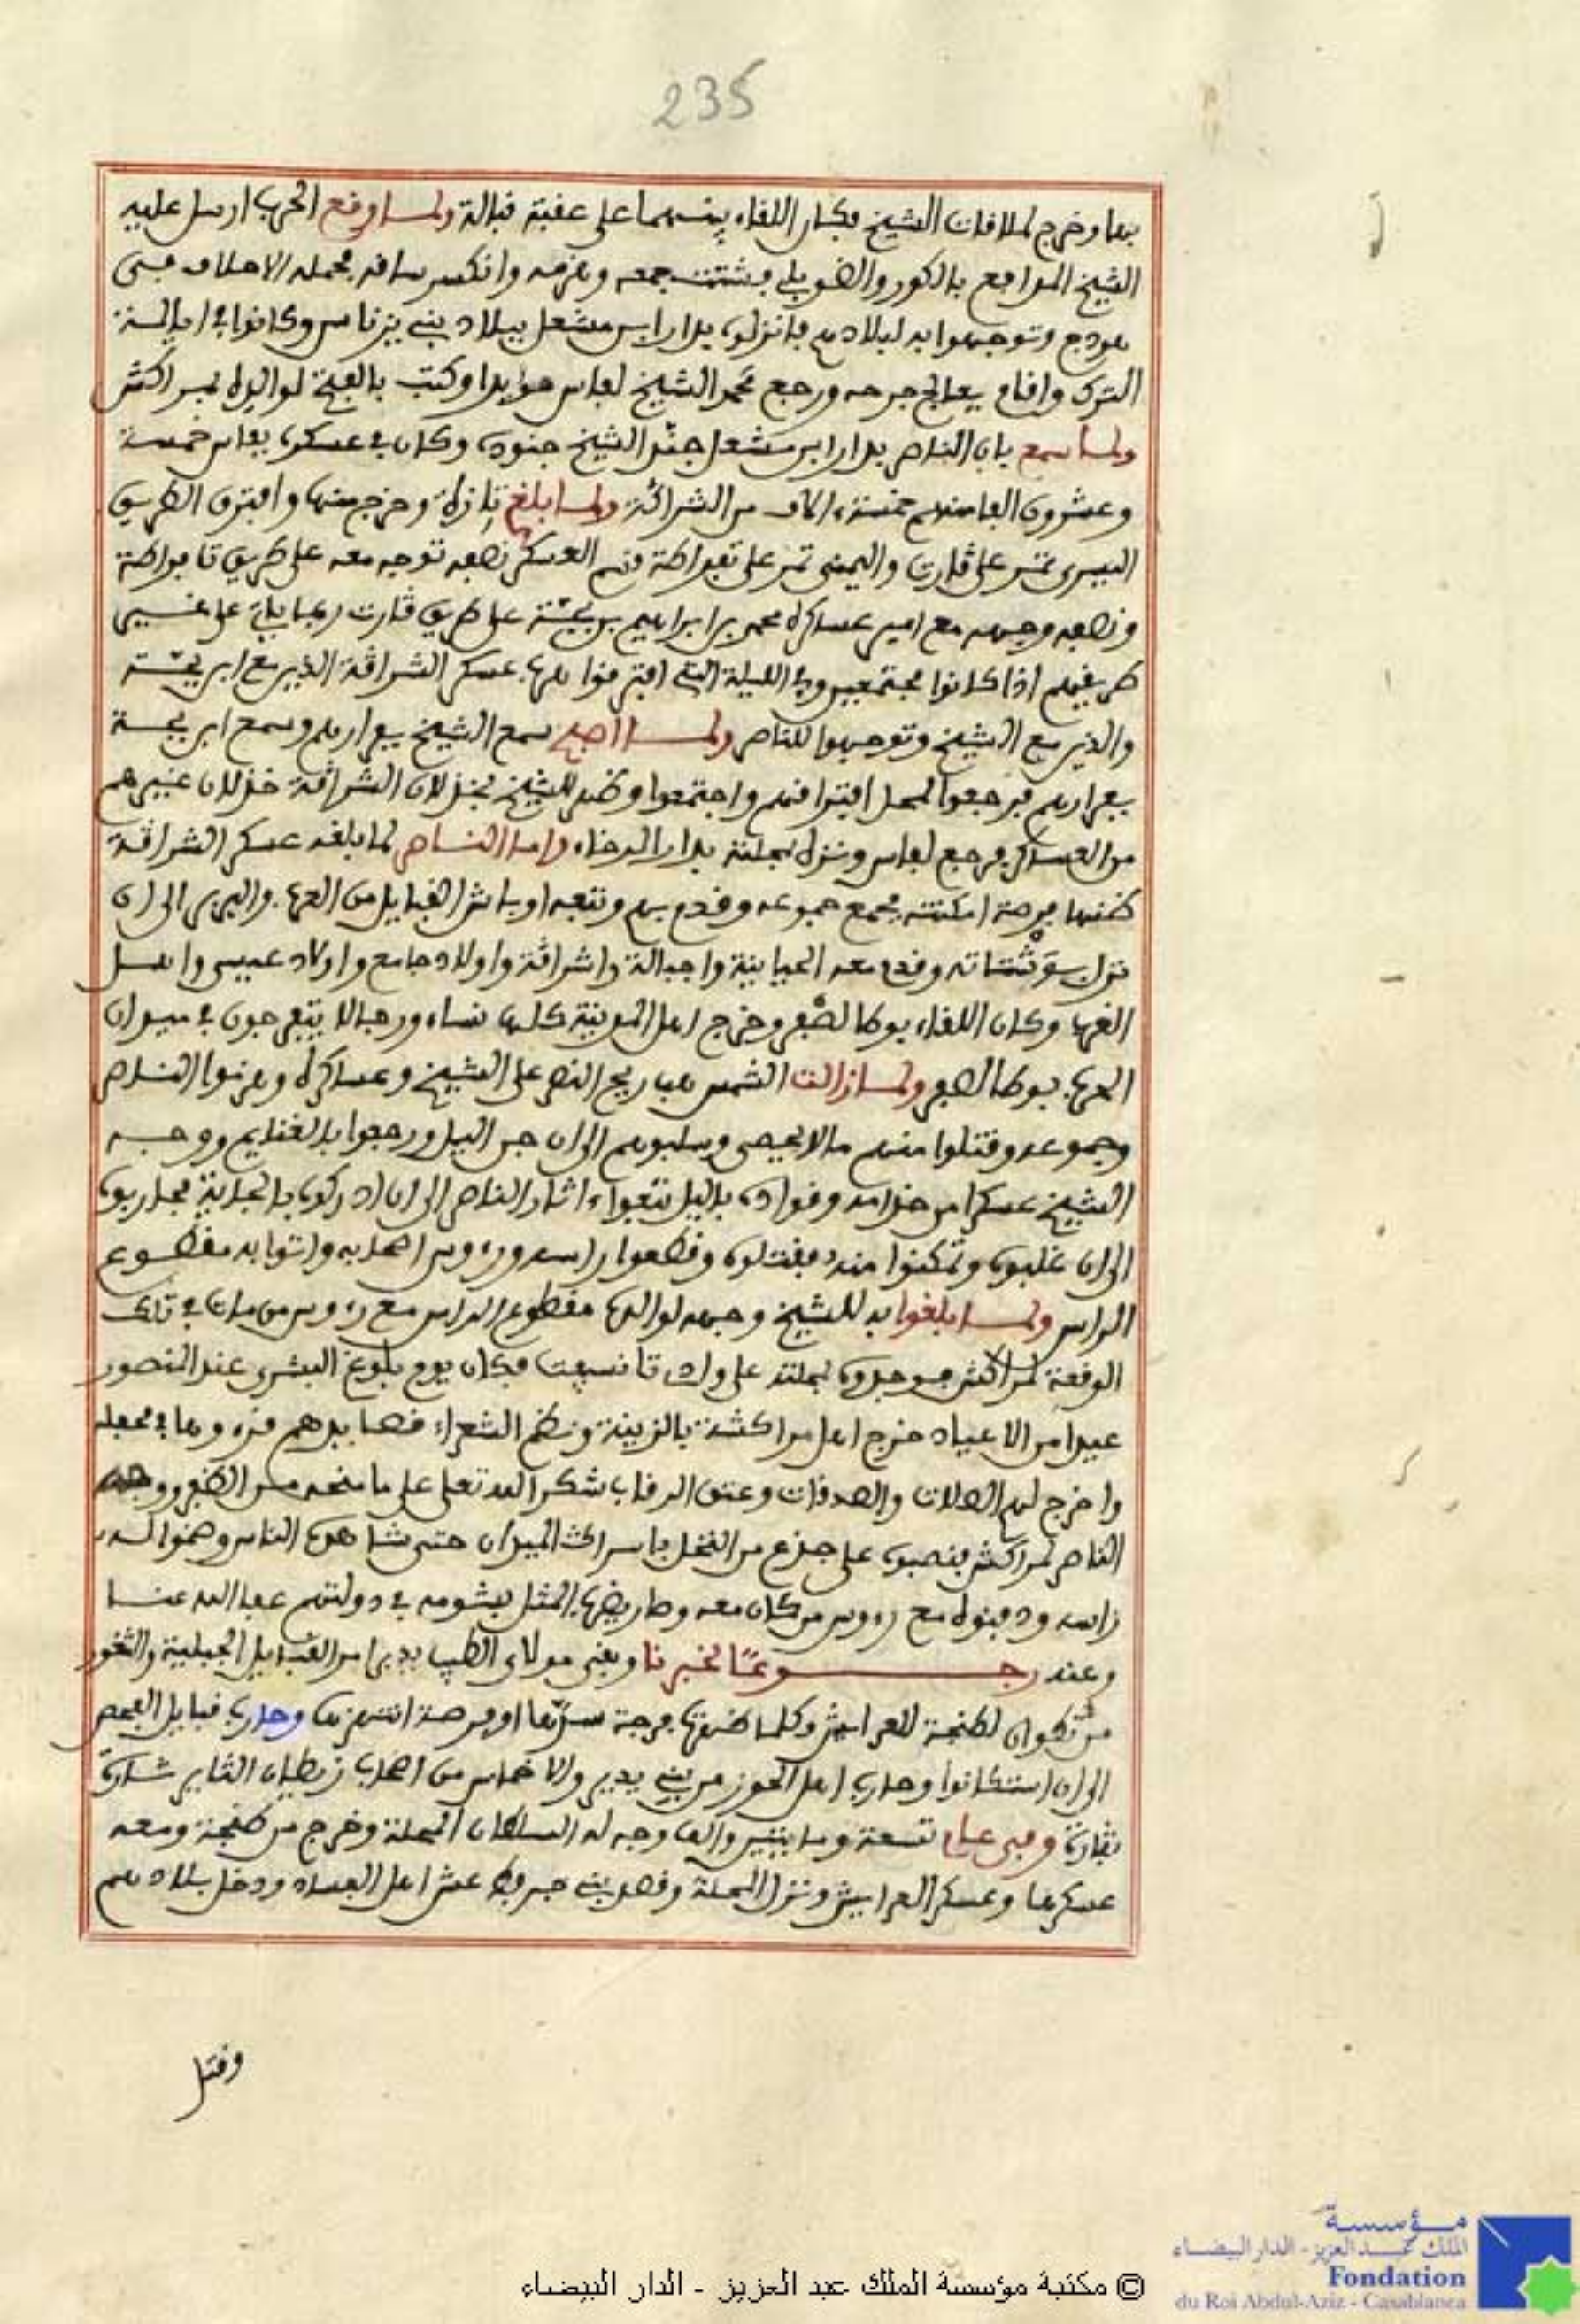 235
بها وخرج لملاقات الشيخ فكان اللقاء بينهما على عقبة قبالة ولما وقع الحرب ارسل عليه
الشيخ المدافع بالكور والضوبلي فشتت جمعه وهزمه وانكسر ساقه فحمله الاحلاف في
هودج وتوجهوا به لبلادهم فانزلوه بدار ابن مشعل ببلاد بني يزناسن وكانوا في ايالة
الترك واقام يعالج جرحه ورجع محمد الشيخ لفاس مؤيدا وكتب بالفتح لوالده لمراكش
ولما سمع بان الناصر بدار ابن مشعل جند الشيخ جنوده وكان في عسكره بفاس خمسة
وعشرون الفا منهم خمسة ءالاف من الشراقة ولما بلغ تازة وخرج منها وافترق الطريق
اليسرى تمر على ڭارت واليمنى تمر على تفراطة قسم العسكر نصفه توجه معه على طريق تافراطة
ونصفه وجهه مع امير عساكره محمد بن ابراهيم بن بجة على طريق ڭارت
طريقهم اذا كانوا مجتمعين وفي الليلة التي افترقوا هرب عسكر الشراڭة الذين مع ابن بجة
والذين مع الشيخ وتوجهوا للناصر ولما اصبح سمع الشيخ بفرارهم وسمع ابن بجة
بفرارهم فرجعوا لمحل افتراقهم واجتمعوا وظهر للشيخ بخذلان الشراڭة خذلان غيرهم
من العساكر فرجع لفاس ونزل بمحلته بدار الرخاء واما الناصر لما بلغه عسكر الشراڭة
ظنها فرصة امكنته فجمع جموعه وقدم بهم وتبعه اوباش القبايل من العرب والبربر الى ان
نزل وقدم معه الحياينة واجبالة واشراڭة واولاد جامع واولاد عيسى واهل
الغرب وكان اللقاء بوطا لظفر وخرج اهل المدينة كلها نساء ورجالا يتفرجون في ميدان
الحرب بوطا الظفر ولما زالت الشمس هب ريح النصر على الشيخ وعساكره وهزموا الناصر
وجموعه وقتلوا منهم ما لا يحصى وسلبوهم الى ان جن اليل ورجعوا بالغنايم ووجه
الشيخ عسكرا من خدامه وقواده باليل تتبعوا ءاثار الناصر الى ان ادركوه بالجاية فحاربوه
الى ان غلبوه وتمكنوا منه فقتلوه وقطعوا راسه ورءوس اصحابه واتوا به مقطوع
الراس ولما بلغوا به للشيخ وجهه لوالده مقطوع الراس مع رءوس من مات في تلك
الوقعة لمراكش فوجدوه بمحلته على واد تانسيفت فكان يوم بلوغ البشرى عند المنصور
عيدا من الاعياد خرج اهل مراكشة بالزينة ونظم الشعراء قصايدهم
واخرج لهم الصلات والصدقات وعتق الرقاب شكرا لله تعلى على ما منحه من الظفر
الناصر لمراكش فنصبوه على جذع من النخل بأسراك الميدان حتى شاهده الناس
راسه ودفنوه مع رءوس من كان معه وصار يضرب المثل بشومه في دولتهم عفا الله عنا
وعنه رجوعا لخبرنا وبقي مولاي الطيب يدبر امر القبايل الجبلية والثغور
من تطوان لطنجة للعرايش وكلما ظهرت فرجة سدها او فرصة انتهزها وحارب قبايل الفحص
الى ان استكانوا وحارب اهل الحوز من بني يدير والاخماس من اصحاب زيطان الثاير
وفي عام تسعة ومايتين والف وجه له السلطان المحلة وخرج من طنجة ومعه
عسكرها وعسكر العرايش ونزل المحلة وقصد بني جرفط عش اهل الفساد ودخل بلادهم
وقتل
© مكتبة مؤسسة الملك عبد العزيز - الدار البيضاء
مؤسسة
الملك عبد العزيز - الدار البيضاء
Fondation
du Roi Abdul-Aziz - Casablanca